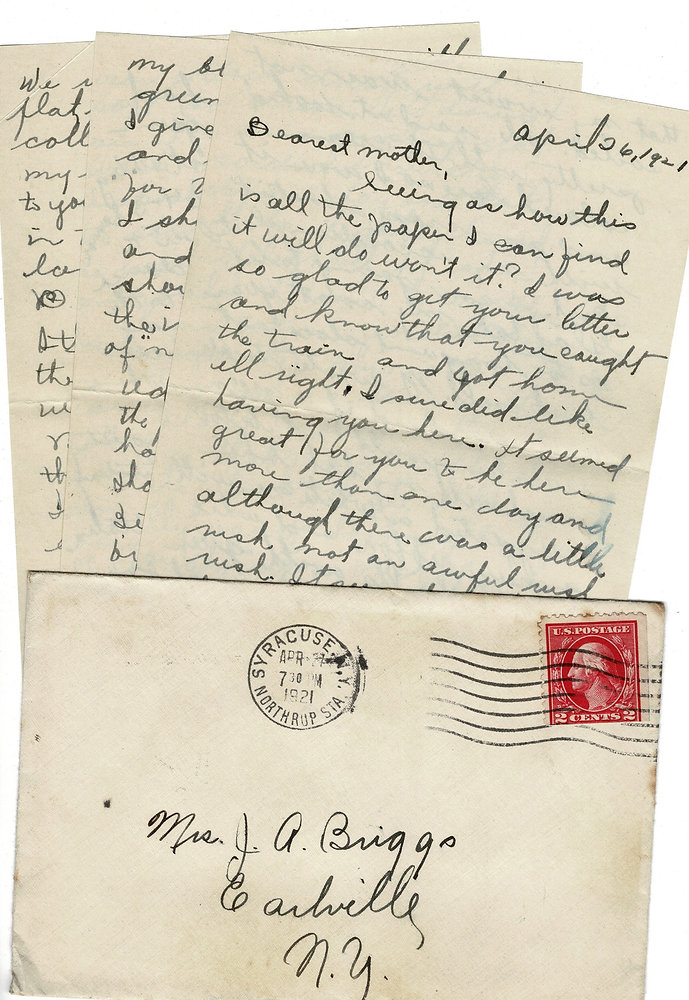 We
plat
coll
my
to you
in
It
the
my
green
I give
and
for
I sh
and
shou
the
of "n
the
ha
sho
April 26, 1921
Dearest mother,
Seeing as how this
is all the paper I can find
it will do won't it? I was
so glad to get your letter
and know that you caught
the train and got home
all right. I sure did like
having you here. It seemed
great for you to be here
more than one day and
although there was a little
rush not an awful rush
rush. It
SYRACUSE, N.Y.
APR
7 30 PM
1921
NORTHRUP STA.
U.S. POSTAGE
2 CENTS 2
Mrs. J. A. Briggs
Earlville
N.Y.